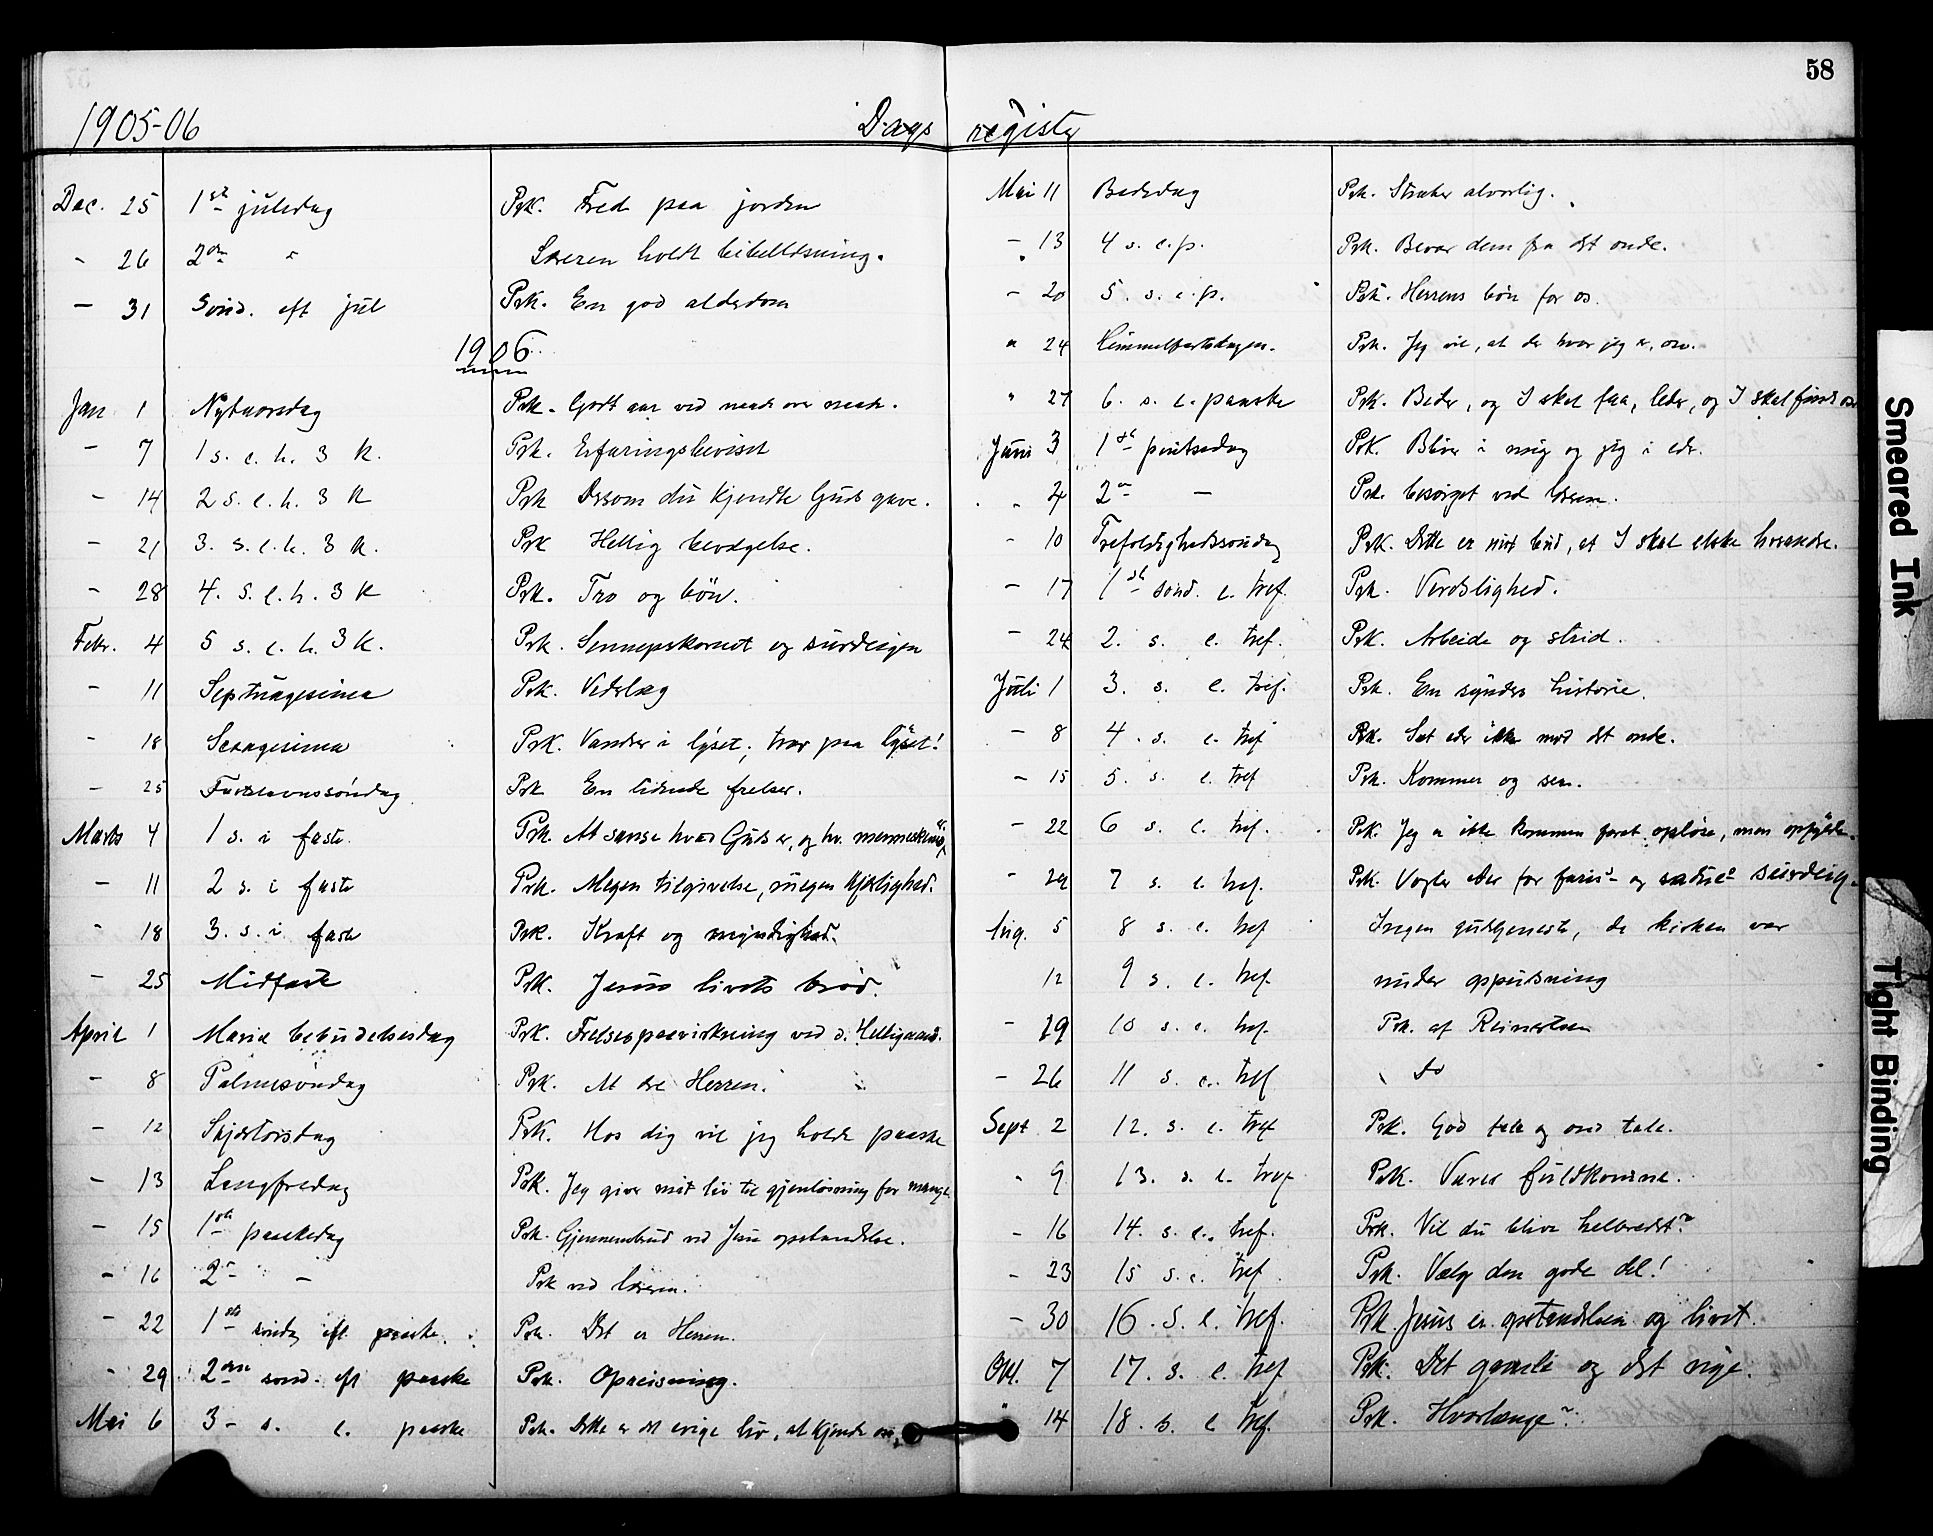 58
1905-06 Dagsregister
Dec. 25 1ste juledag Prk. Fred paa jorden
- 26 2den " Læreren holdt bibellæsning.
- 31 Sønd. eft jul Prk. En god alderdom
1906
Jan 1 Nytaarsdag Prk. Godt aar ved naade over naade.
- 7 1 s. e. h. 3 K. Prk. Erfaringsbeviset
- 14 2 s. e. h. 3 K Prk Dersom du kjendte Guds gave.
- 21 3. s. e. h. 3 K. Prk Hellig bevægelse.
- 28 4. s. e. h. 3 K Prk. Tro og bön.
Febr. 4 5 s. e. h. 3 K. Prk. Sennepskornet og surdeigen
- 11 Septuagesima Prk. Vederlag
- 18 Sexagesima Prk. Vandrer i lyset, tror paa lyset!
- 25 Fastelavnssöndag Prk En lidende frelser.
Marts 4 1 s. i faste. Prk. At sanse hvad Guds er, og hv. menneskene
- 11 2 s. i faste Prk. Megen tilgivelse, megen kjærlighed.
- 18 3. s. i faste Prk. Kraft og myndighed.
- 25 Midfaste Prk. Jesus livets bröd.
April 1 Maria bebudelsesdag Prk. Frelsespaavirkning ved d. Helligaand.
- 8 Palmesöndag Prk. At se Herren.
- 12 Skjærtorsdag Prk. Hos dig vil jeg holde paaske
- 13 Langfredag Prk. Jeg giver mit liv til gjenlösning for mange
- 15 1ste paaskedag Prk. Gjennembrud ved Jesu opstandelse.
- 16 2den - Prk ved læreren.
- 22 1ste söndag eft. paaske. Prk. Det er Herren.
- 29 2den sönd. eft paaske Prk. Opreisning.
Mai 6 3- s. e. paaske Prk. Dette er det evige liv, at kjende
Mai 11 Bededag Prk. Stræber alvorlig.
- 13 4 s. e. p. Prk. Bevar dem fra det onde.
- 20 5. s. e. p. Prk. Herrens bön for os.
" 24 Himmelfartsdagen. Prk. Jeg vil, at der hvor jeg er, osv.
" 27 6. s. e. paaske Prk. Beder, og I skal faa, leder, og I skal finde
Juni 3 1ste pintsedag Prk. Bliver i mig og jeg i eder.
" 4 2den - Prk. besörget ved læreren.
- 10 Trefoldighedssöndag Prk. Dette er mit bud, at I skal elske hverandre.
- 17 1ste sönd. e. tref. Prk. Verdslighed.
- 24 2. s. e. tref. Prk. Arbeide og strid.
Juli 1 3. s. e. tref. Prk. En synders historie.
- 8 4. s. e. tref Prk. Sæt eder ikke mod det onde.
- 15 5. s. e. tref Prk. Kommer og ser.
- 22 6 s. e. tref. Prk. Jeg er ikke kommen forat oplöse, men opfylde.
- 29 7 s. e. tref. Prk. Vogter eder for faris- og sadue- surdeig.
Aug. 5 8 s. e. tref Ingen gudstjeneste, da kirken var
12 9 s. e. tref. under oppudsning
- 19 10 s. e. tref. Prk. af Reinertsen
- 26 11 s. e. tref do
Sept 2 12. s. e. tref Prk. God tale og ond tale.
" 9 13. s. e. tref Prk. Værer fuldkomne.
- 16 14. s. e. tref. Prk. Vil du blive helbredet?
- 23 15 s. e. tref. Prk. Vælg den gode del!
- 30 16. s. e. tref. Prk. Jesus er opstandelsen og livet.
Okt. 7 17. s. e. tref Prk. Det gamle og det nye.
" 14 18. s. e tref. Prk. Hvorlænge?
Smeared Ink
Tight Binding